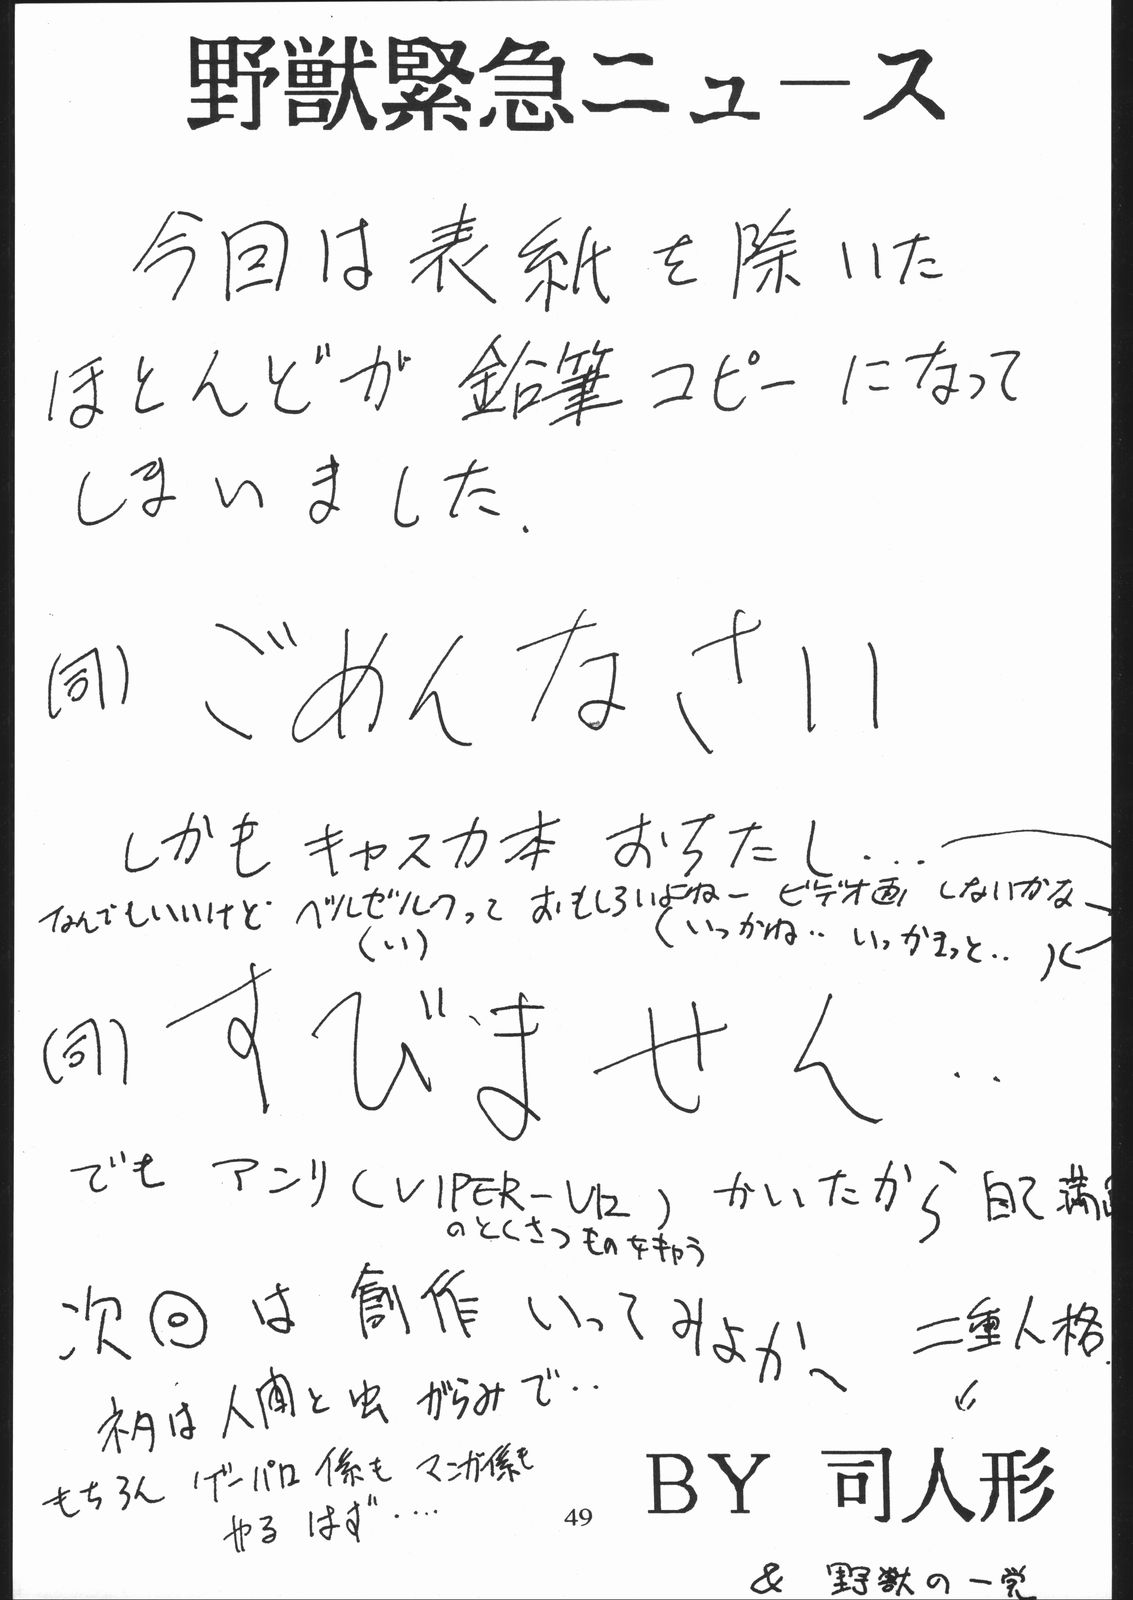 野獣緊急ニュース
今回は表紙を除いた
ほとんどが鉛筆コピーになって
しまいました.
(司) ごめんなさい
しかもキャスカ本おちたし…
なんでもいいけどベルセルクっておもしろいよねー ビデオ画しないかな
(い) (いつかね‥ いつかきっと‥
(司) すびません‥
でもアンリ(VIPER-V12)かいたから自己満
のとくさつもの
次回は創作いってみよか〜 二重人格.
初は人間と虫がらみで‥
もちろんゲーパロ係もマンガ係も
やるはず‥‥
BY 司人形
& 野獣の一党
49